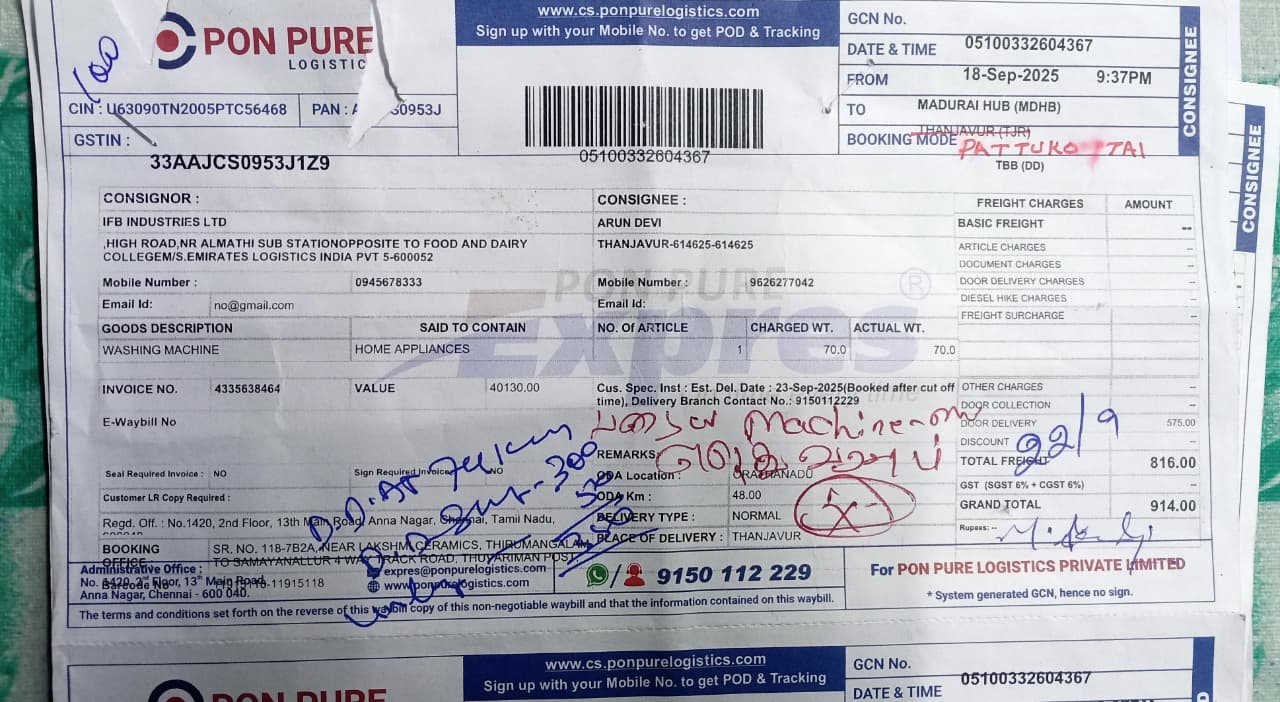 100
PON PURE
LOGISTIC
www.cs.ponpurelogistics.com
Sign up with your Mobile No. to get POD & Tracking
GCN No.
DATE & TIME 05100332604367
FROM 18-Sep-2025 9:37PM
TO MADURAI HUB (MDHB)
BOOKING MODE THANJAVUR (TJR)
PATTUKOTTAI
TBB (DD)
CONSIGNEE
CONSIGNEE
CIN : U63090TN2005PTC56468 PAN : A S0953J
GSTIN :
33AAJCS0953J1Z9
05100332604367
CONSIGNOR :
IFB INDUSTRIES LTD
,HIGH ROAD,NR ALMATHI SUB STATIONOPPOSITE TO FOOD AND DAIRY
COLLEGEM/S.EMIRATES LOGISTICS INDIA PVT 5-600052
Mobile Number : 0945678333
Email Id: no@gmail.com
CONSIGNEE :
ARUN DEVI
THANJAVUR-614625-614625
Mobile Number : 9626277042
Email Id:
PON PURE
Expres ®
GOODS DESCRIPTION SAID TO CONTAIN NO. Of ARTICLE CHARGED WT. ACTUAL WT.
WASHING MACHINE HOME APPLIANCES 1 70.0 70.0
INVOICE NO. 4335638464 VALUE 40130.00
E-Waybill No
Seal Required Invoice : NO Sign Required Invoice NO
Customer LR Copy Required :
Cus. Spec. Inst : Est. Del. Date : 23-Sep-2025(Booked after cut off
time), Delivery Branch Contact No.: 9150112229
Machine
REMARKS
ODA Location : ORATHANADU
ODA Km : 48.00
DELIVERY TYPE : NORMAL
PLACE OF DELIVERY : THANJAVUR
FREIGHT CHARGES AMOUNT
BASIC FREIGHT --
ARTICLE CHARGES --
DOCUMENT CHARGES --
DOOR DELIVERY CHARGES --
DIESEL HIKE CHARGES --
FREIGHT SURCHARGE --
OTHER CHARGES --
DOOR COLLECTION --
DOOR DELIVERY 575.00
DISCOUNT --
22/9
TOTAL FREIGHT 816.00
GST (SGST 6% + CGST 6%) --
GRAND TOTAL 914.00
Rupees: --
Regd. Off. : No.1420, 2nd Floor, 13th Main Road, Anna Nagar, Chennai, Tamil Nadu,
BOOKING OFFICE: SR. NO. 118-7B2A, NEAR LAKSHMI CERAMICS, THIRUMANGALAM
TO SAMAYANALLUR 4 WAY TRACK ROAD, THUVARIMAN POST,
Administrative Office :
No. 1420, 2nd Floor, 13th Main Road,
Anna Nagar, Chennai - 600 040.
expres@ponpurelogistics.com
www.ponpurelogistics.com
9150 112 229
For PON PURE LOGISTICS PRIVATE LIMITED
* System generated GCN, hence no sign.
The terms and conditions set forth on the reverse of this waybill copy of this non-negotiable waybill and that the information contained on this waybill.
PON PURE
www.cs.ponpurelogistics.com
Sign up with your Mobile No. to get POD & Tracking
GCN No.
DATE & TIME 05100332604367